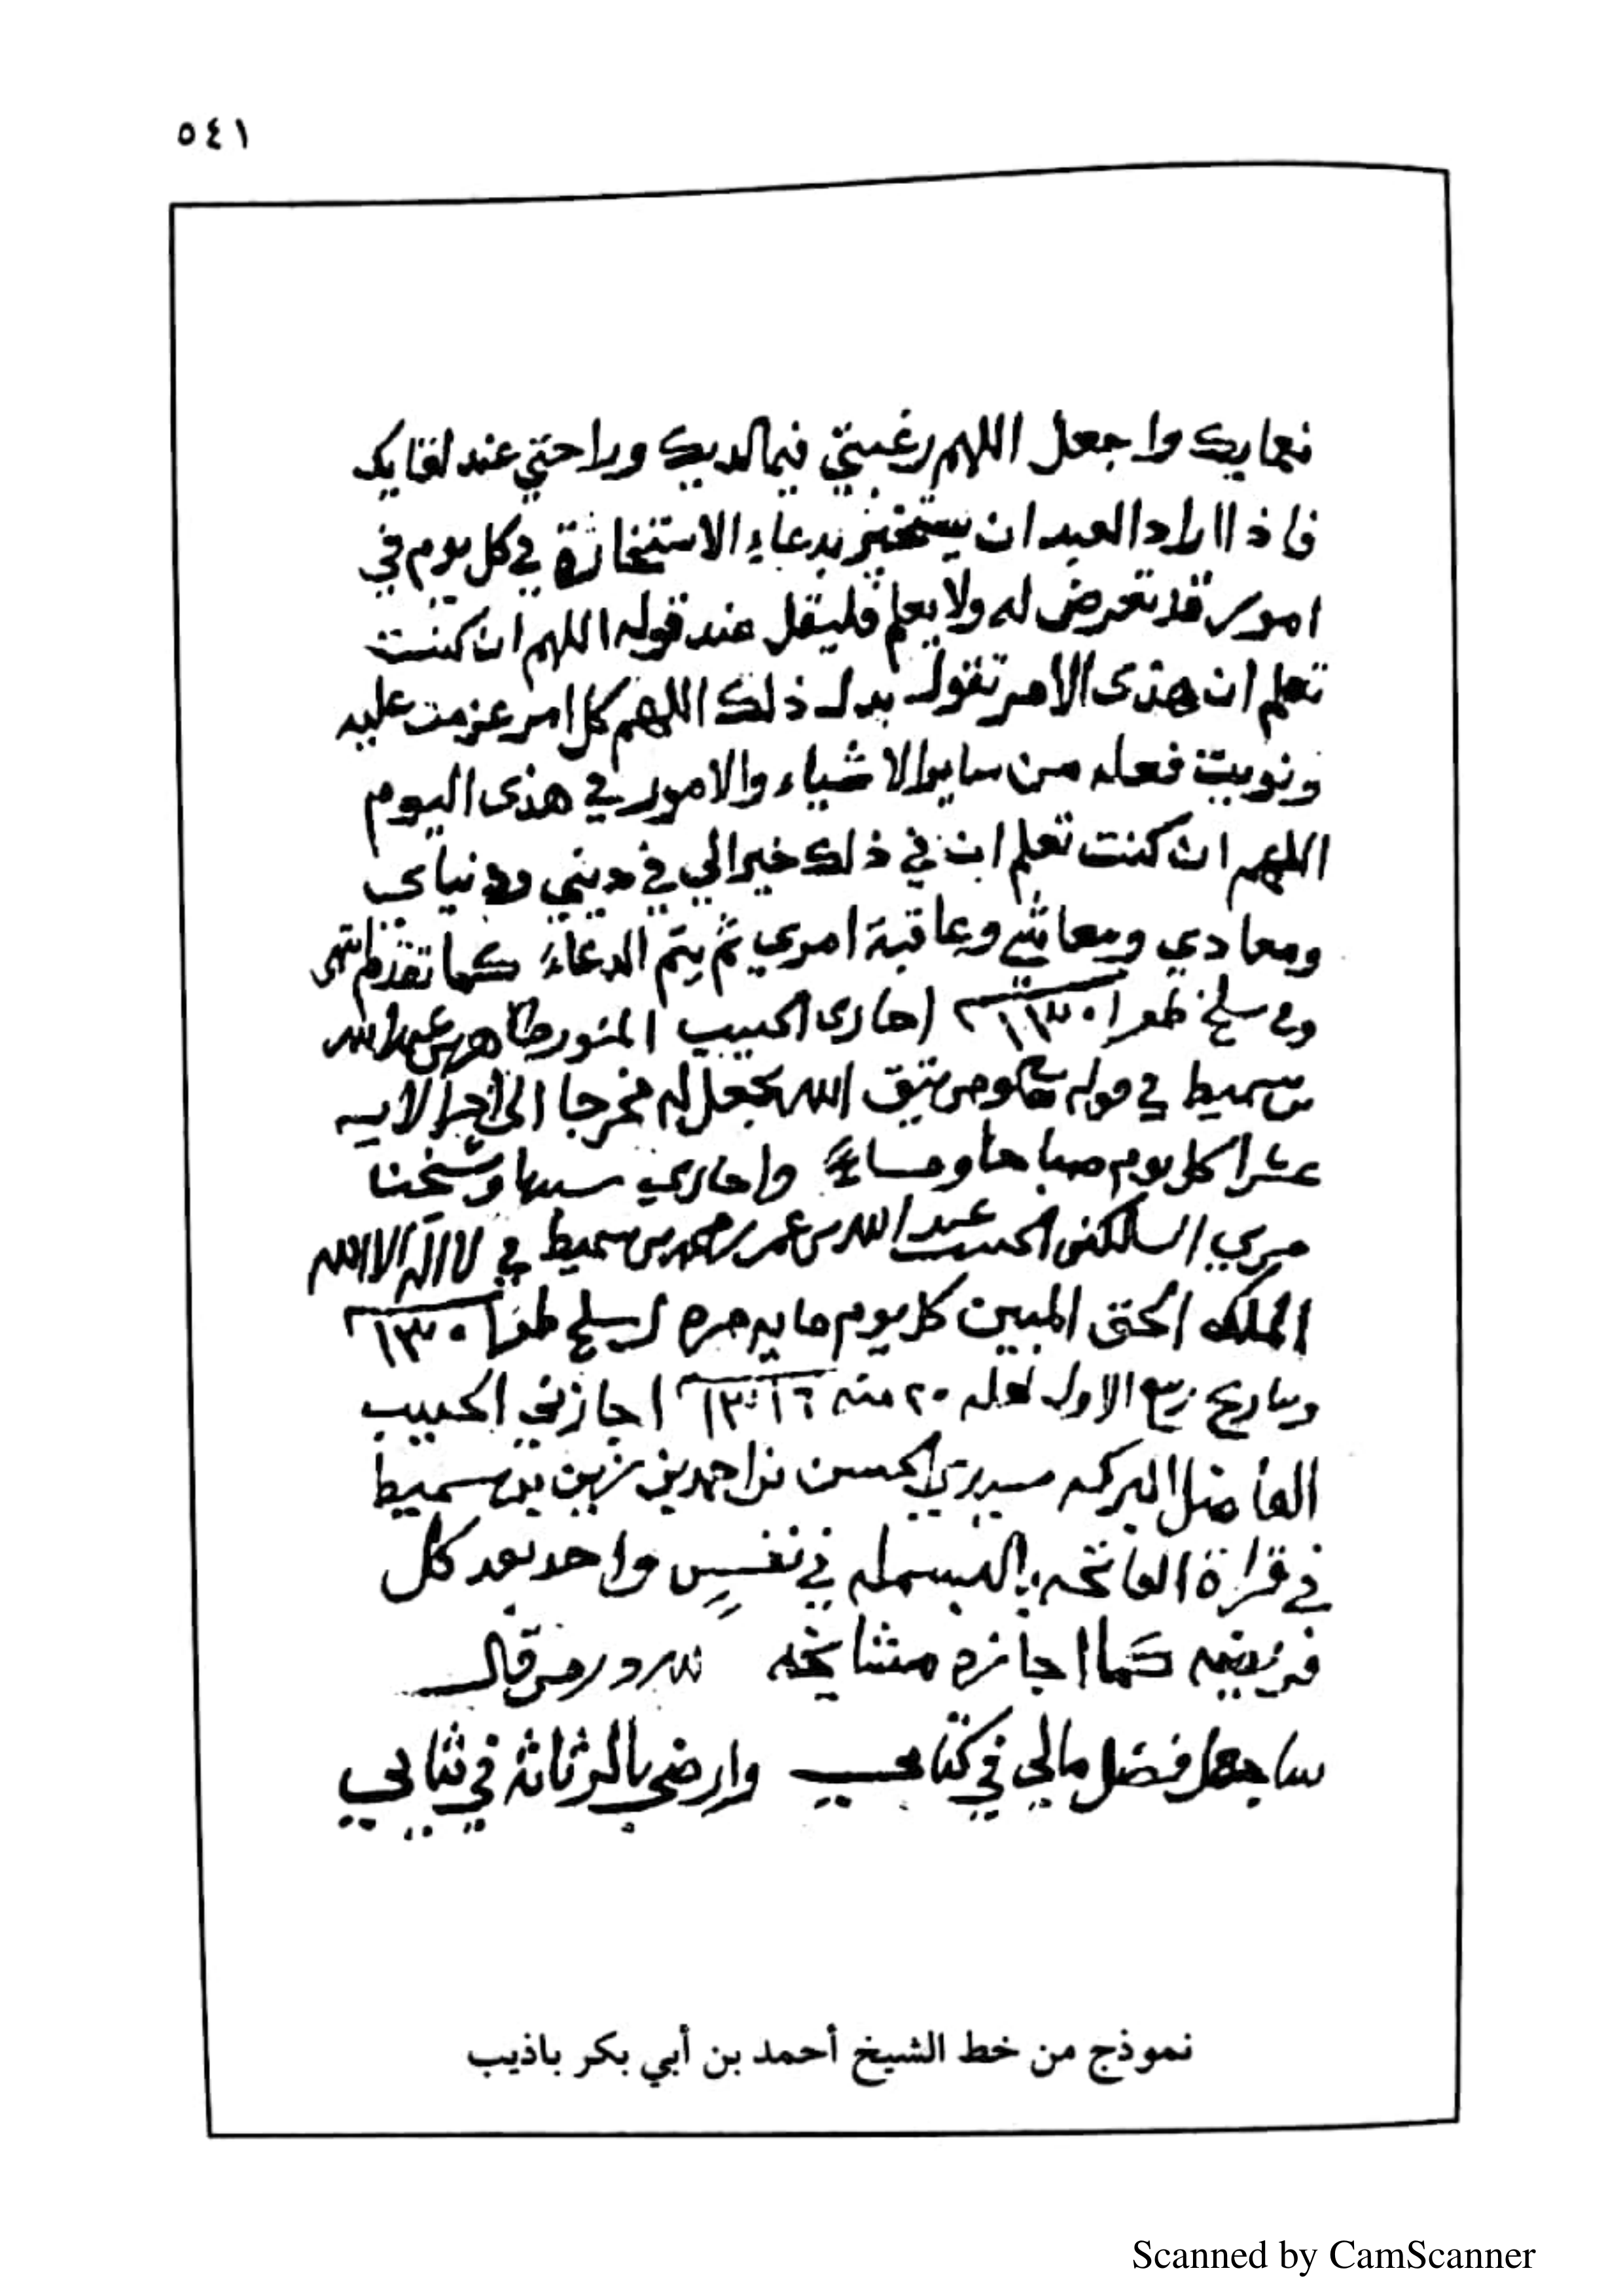 ٥٤١
نعمايك واجعل اللهم رغبتي فيما لديك وراحتي عند لقايك
فاذا اراد العبد ان يستخير بدعاء الاستخارة في كل يوم في
امور قد تعرض له ولا يعلم فليقل عند قوله اللهم ان كنت
تعلم ان هذى الامر تقول بدل ذلك اللهم كل امر عزمت عليه
ونويت فعله من ساير الاشياء والامور في هذى اليوم
اللهم ان كنت تعلم ان في ذلك خيرا لي في ديني ودنياي
ومعادي ومعاشي وعاقبة امري ثم يتم الدعاء كما تقدم انتهى
وفي سلخ ظفر ١٣٠ اجازى الحبيب المنور طاهر بن عبدالله
بن سميط في قوله ومن يتق الله يجعل له مخرجا الى اخر الايه
عشرا كل يوم صباحا ومساء واجازي سيدنا وشيخنا
مربي السالكين الحبيب عبد الله بن عمر بن محمد بن سميط في لا اله الا الله
الملك الحق المبين كل يوم مايه مره سلخ ظفر ١٣٠
وبتاريخ ربيع الاول لعله ٢٠ منه ١٣١٦ اجازني الحبيب
الفاضل البركه سيدي الحسن بن احمد بن زين بن سميط
في قراة الفاتحه بالبسمله في نفس واحد بعد كل
فريضه كما اجازه مشايخه لله در من قال
ساجعل فضل مالي في كتابي وارضى بالرثاثة في ثيابي
نموذج من خط الشيخ أحمد بن أبي بكر باذيب
Scanned by CamScanner